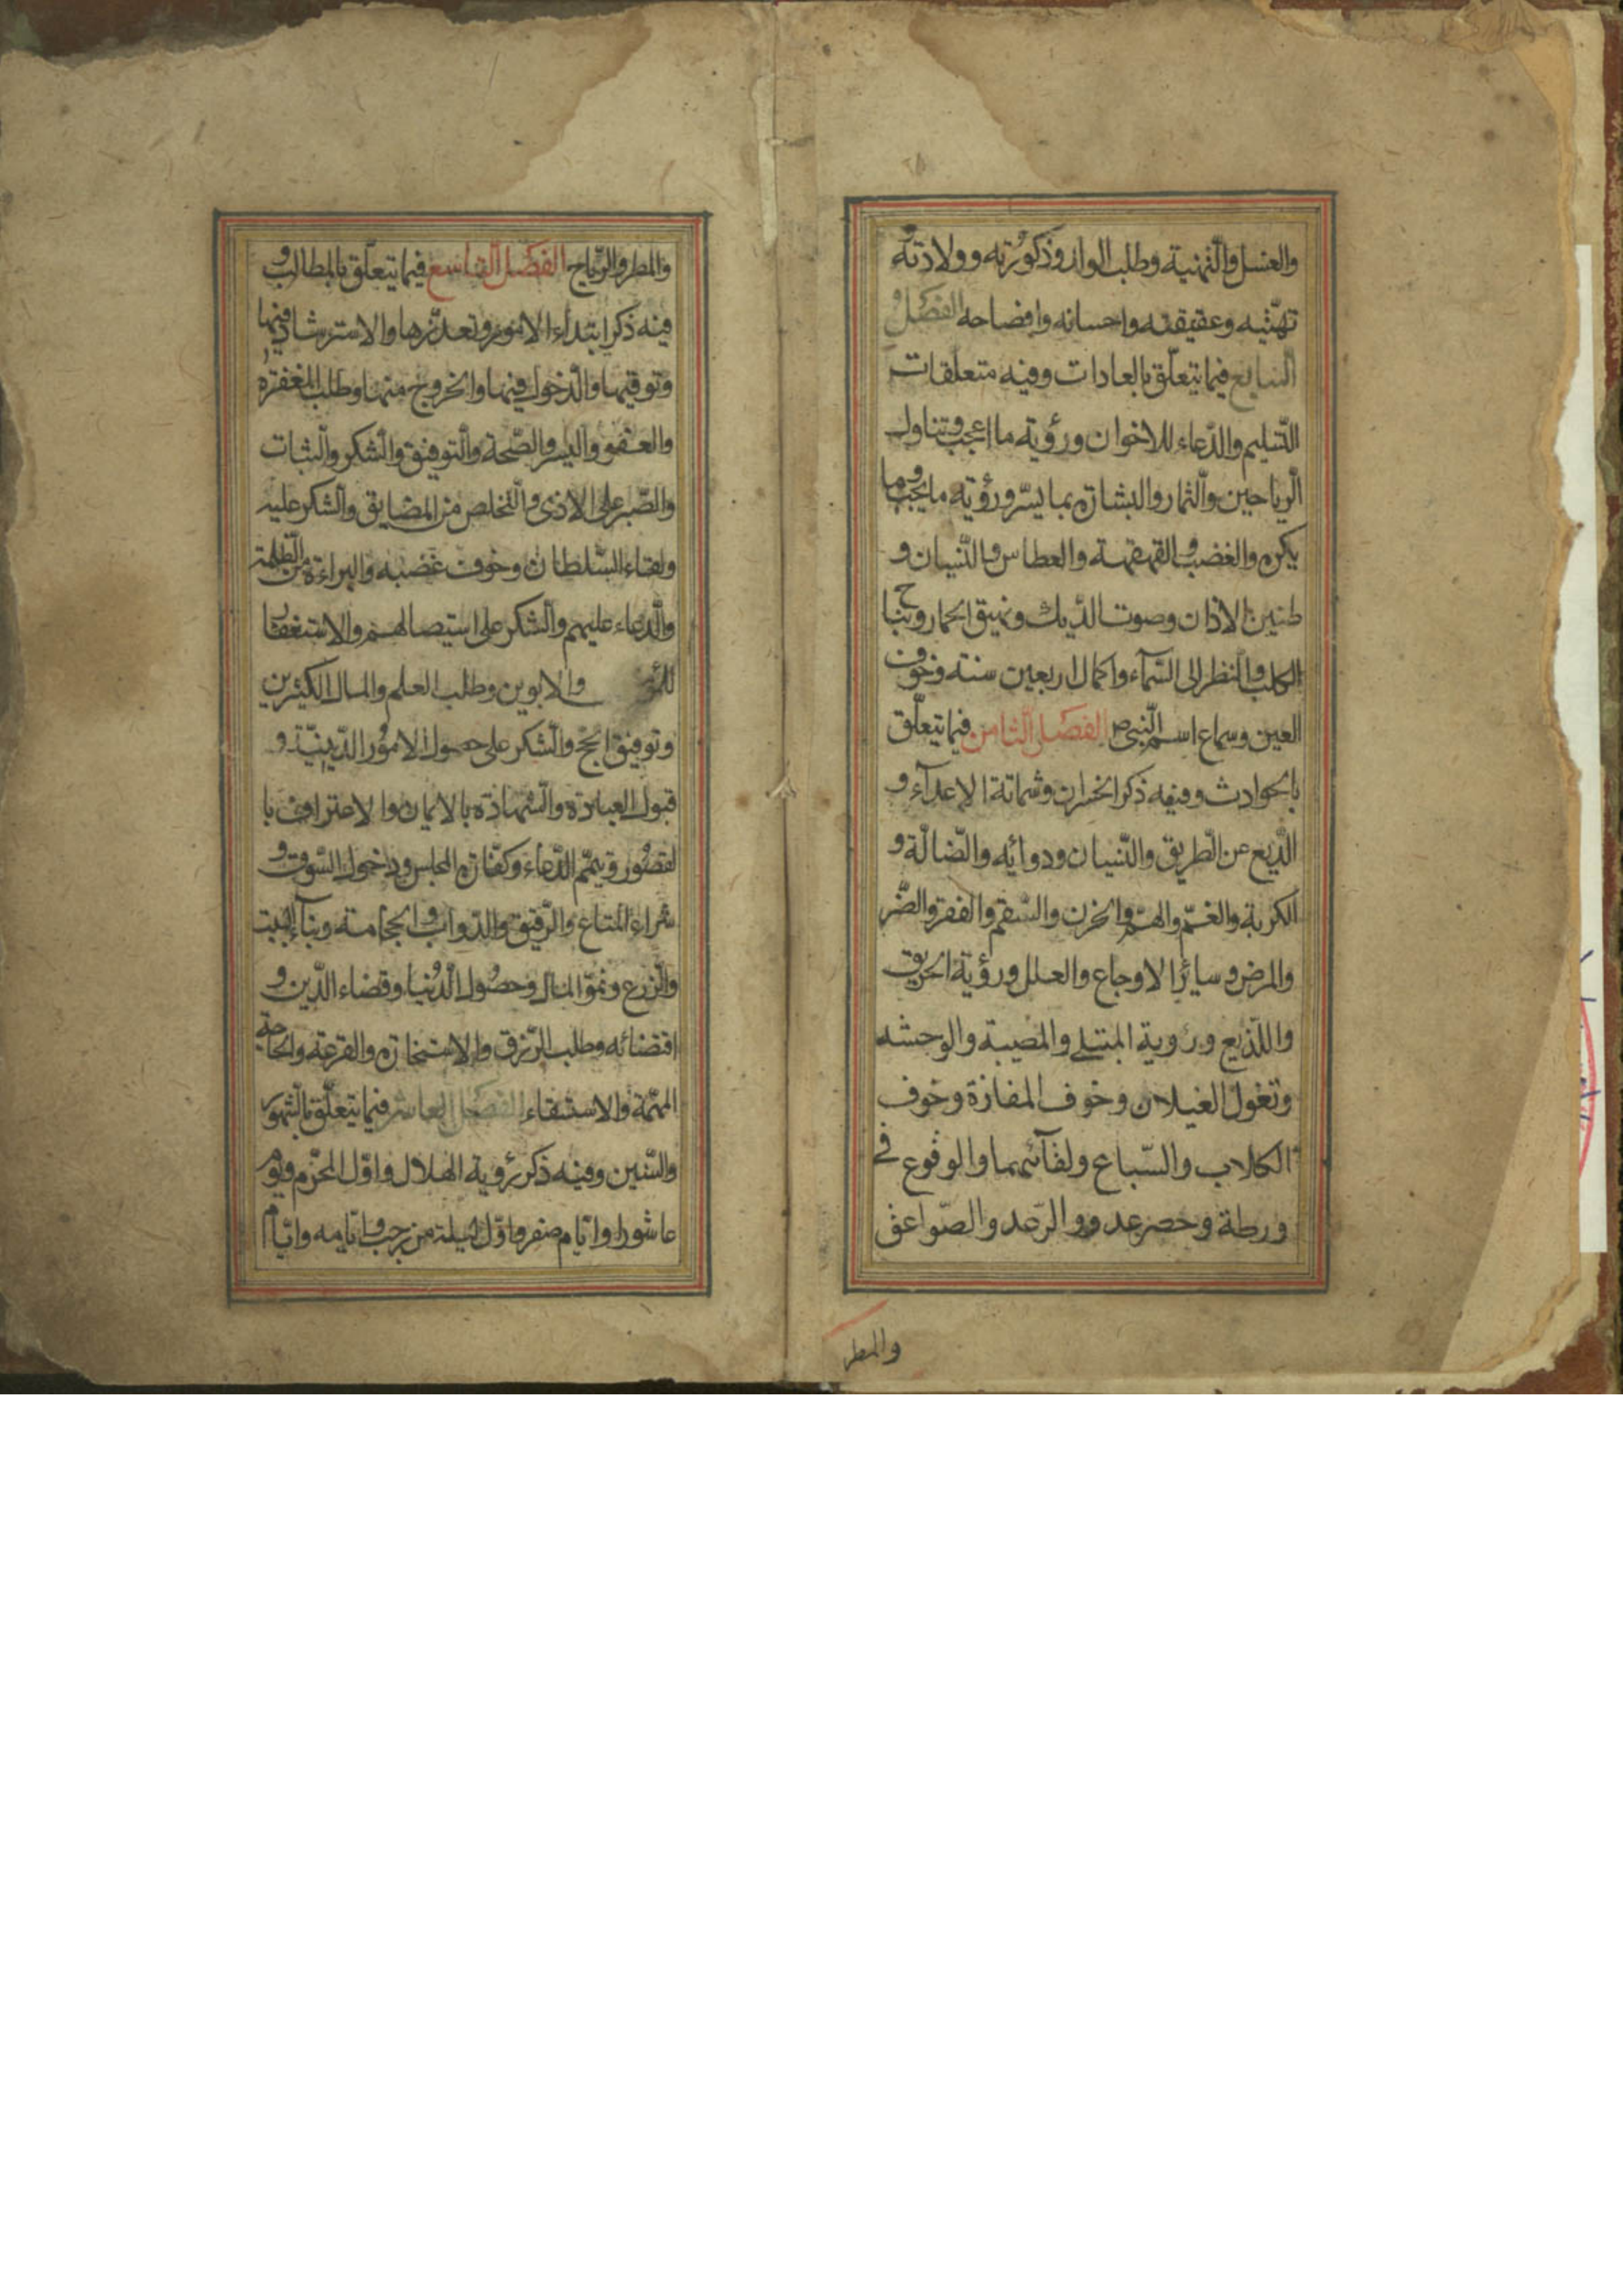 والغسل والتهنية وطلب الولد وذكورته وولادته و
تهنئيه وعقيقته واحسانه وافضاحه الفصل
السابع فيما يتعلّق بالعادات وفيه متعلقات
التسليم والدّعاء للاخوان ورؤية ما اعجب وتناول
الرياحين والثمار والبشارة بما يسرّ ورؤية ما يحب وما
يكره والغضب والقهقهة والعطاس والنّسيان و
طنين الاذان وصوت الدّيك ونهيق الحمار ونباح
الكلب والنظر الى السّمآء واكمال اربعين سنة وخوف
العين وسماع اسم النّبى ص الفصل الثامن فيما يتعلّق
بالحوادث وفيه ذكر الخسران وشماتة الاعدآء و
الذّيع عن الطّريق والنّسيان ودوائه والضّالّة و
الكربة والغمّ والهمّ والحزن والسّقم والفقر والضّر
والمرض وسائر الاوجاع والعلل ورؤية الحريق
واللّذيع ورؤية المبتلى والمصيبة والوحشه
وتغول الغيلان وخوف المفازة وخوف
الكلاب والسّباع ولقآئهما والوقوع فى
ورطة وحصر عدوو الرّعد والصّواعق
والمطر
والمطر والرّياح الفصل التاسع فيما يتعلّق بالمطالب و
فيه ذكر ابتداء الامور وتعذّرها والاسترشاد فيها
وتوقيها والدّخول فيها والخروج منها وطلب المغفرة
والعفو واليسر والصّحة والتوفيق والشكر والثبات
والصّبر على الاذى والتخلص من المضايق والشكر عليه
ولقاء السّلطان وخوف غضبه والبراءة من الظلمة
والدعاء عليهم والشكر على استيصالهم والاستغفار
والابوين وطلب العلم والمال الكثيرين
وتوفيق الحج والشكر على حصول الامور الدّينيّة و
قبول العبادة والشهادة بالايمان والاعتراف با
لقصور وتيمّم الدّعاء وكفّارة المجلس ودخول السّوق و
شراء المتاع والرّقيق والدّواب والحجامة وبنآء البيت
والزرع ونموّ المال وحصول الدّنيا وقضاء الدّين و
اقتضائه وطلب الرّزق والاستخارة والقرعة والحاجة
المهمّة والاستسقاء الفصل العاشر فيما يتعلّق بالشهور
والسّنين وفيه ذكر رؤية الهلال واوّل المحرّم ويوم
عاشورا وايّام صفر واوّل ليلة من رجب وايّامه وايّام